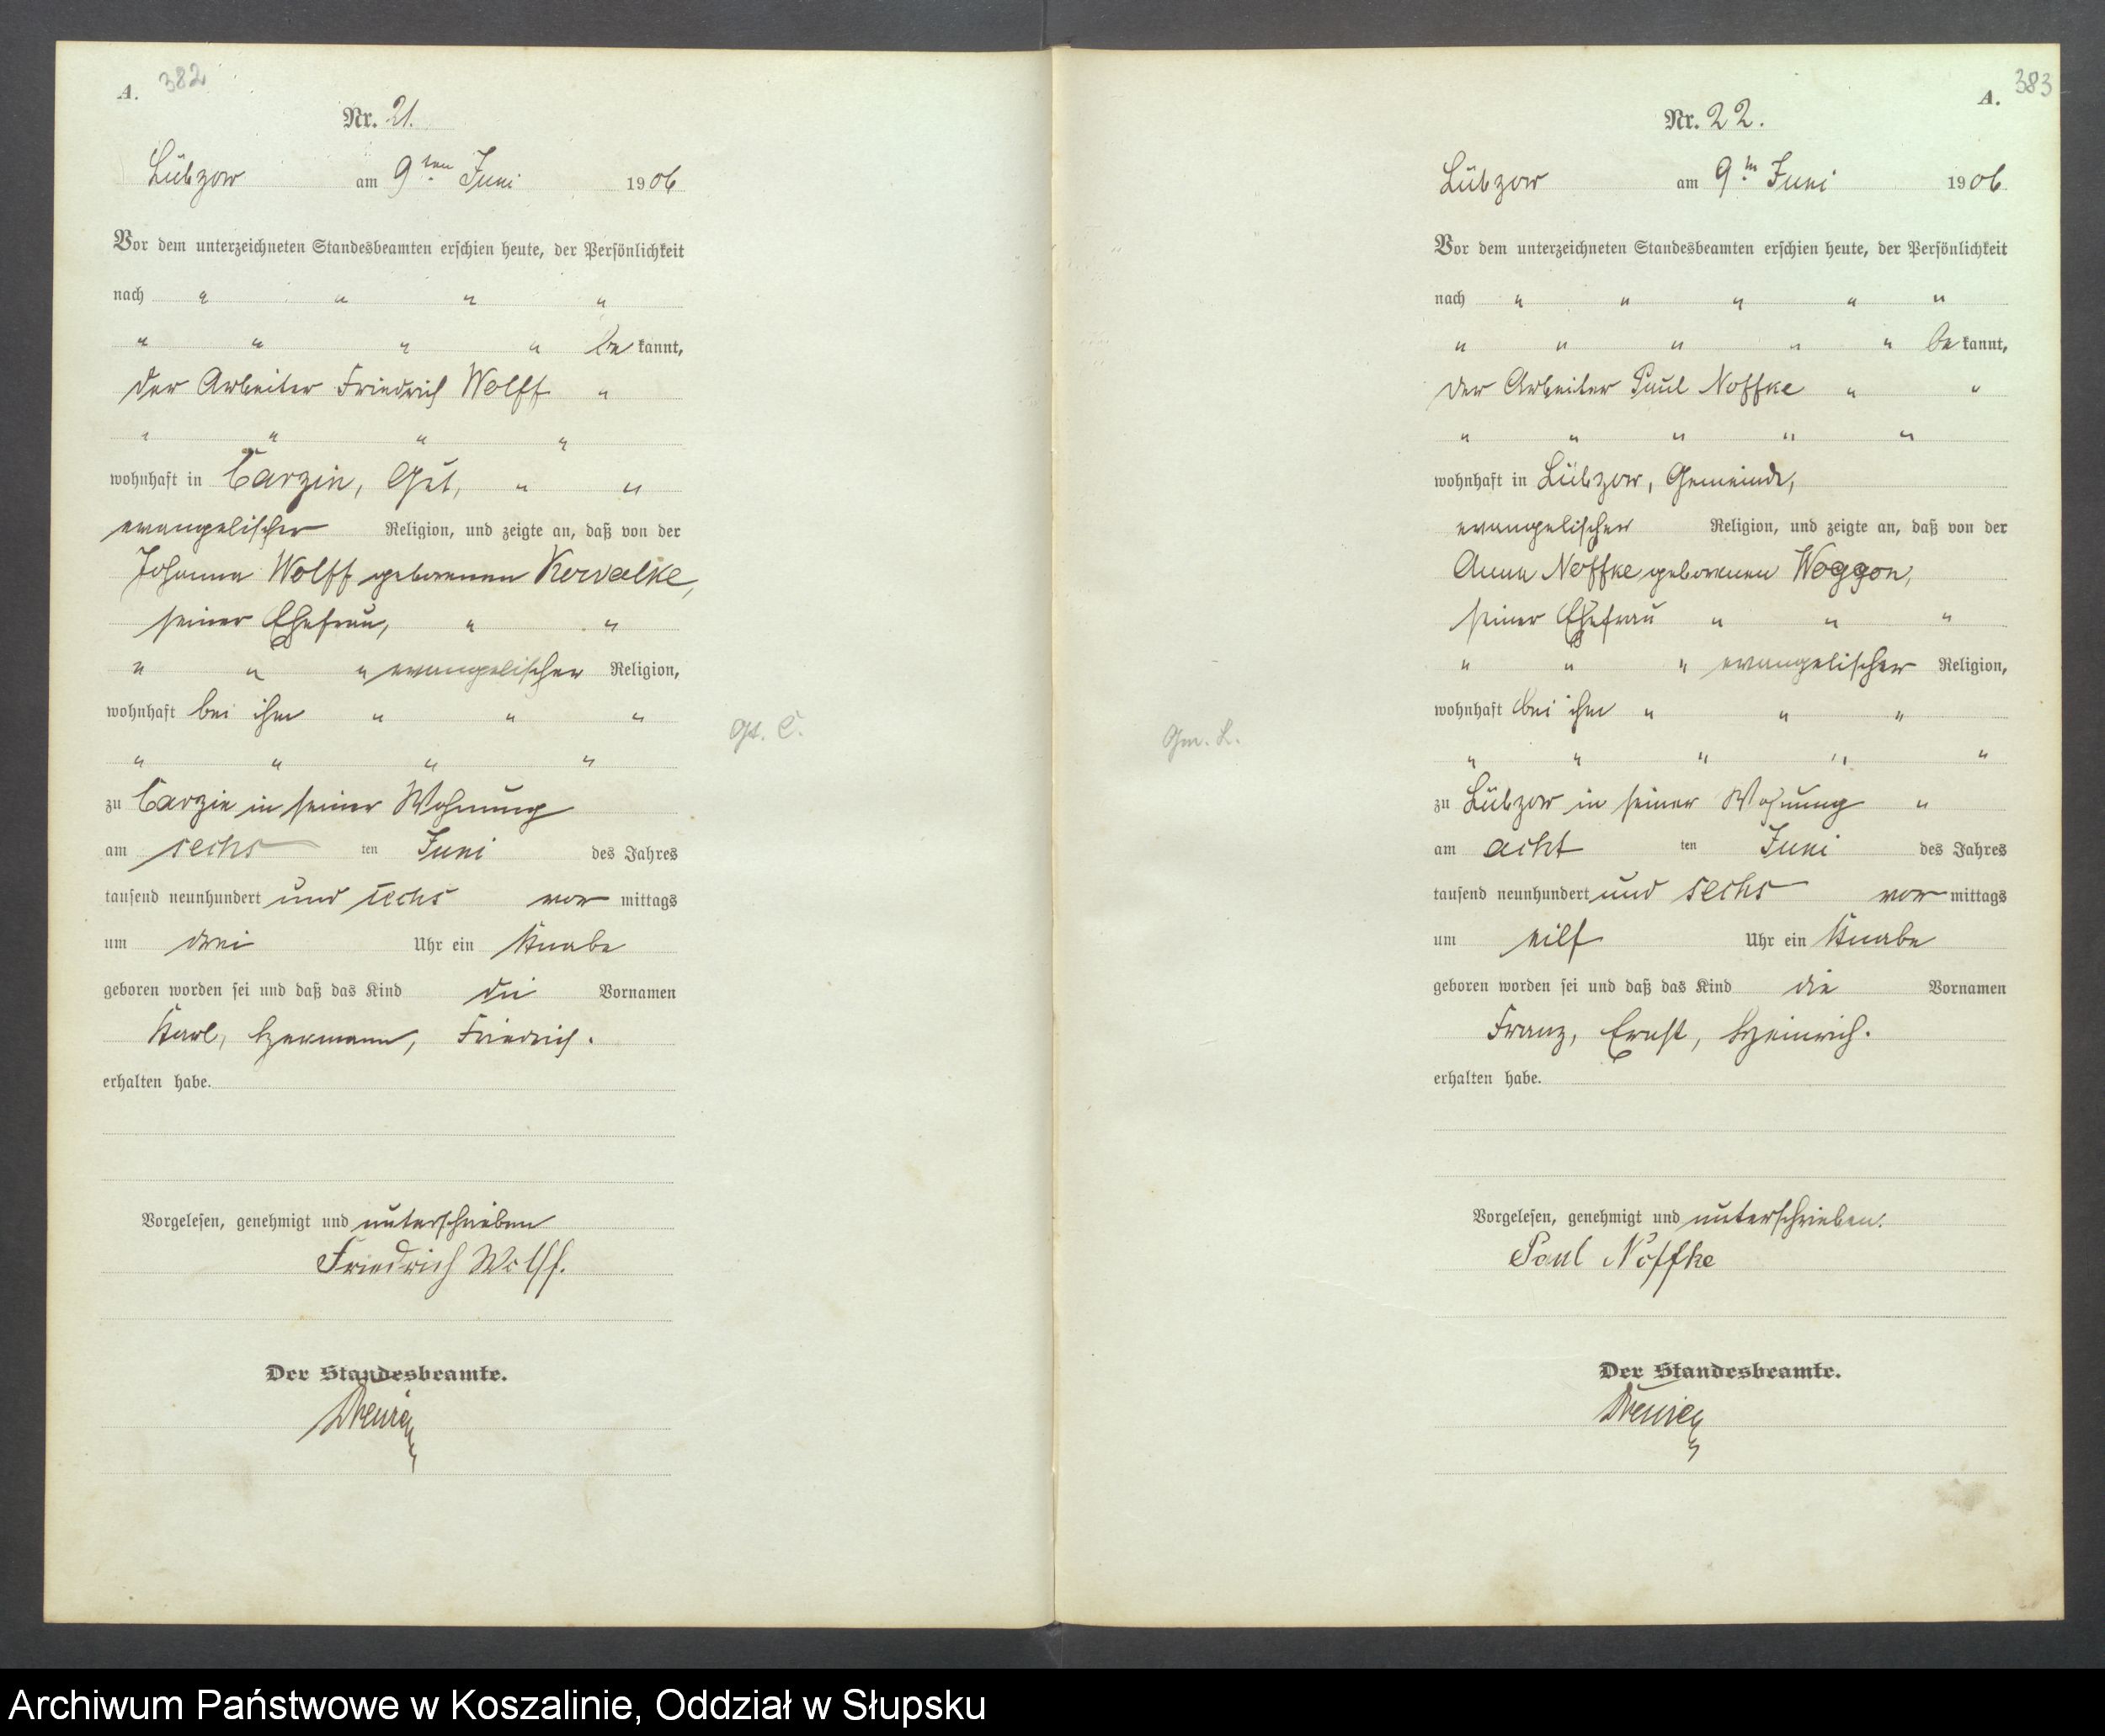 A. 382
Nr. 21.
Lübzow am 9ten Juni 1906
Vor dem unterzeichneten Standesbeamten erschien heute, der Persönlichkeit
nach " " " "
" " " " be kannt,
der Arbeiter Friedrich Wolff "
" " " "
wohnhaft in Carzin, Gut, " "
evangelischer Religion, und zeigte an, daß von der
Johanna Wolff geborenen Kowalke,
seiner Ehefrau, " "
" " " evangelischer Religion,
wohnhaft bei ihm " " "
" " " "
Gt. C.
zu Carzin in seiner Wohnung
am sechs ten Juni des Jahres
tausend neunhundert und sechs vor mittags
um drei Uhr ein Knabe
geboren worden sei und daß das Kind die Vornamen
Karl, Hermann, Friedrich.
erhalten habe.
Vorgelesen, genehmigt und unterschrieben
Friedrich Wolff.
Der Standesbeamte.
A. 383
Nr. 22.
Lübzow am 9tn Juni 1906
Vor dem unterzeichneten Standesbeamten erschien heute, der Persönlichkeit
nach " " " " "
" " " " " be kannt,
der Arbeiter Paul Noffke " "
" " " " "
wohnhaft in Lübzow, Gemeinde,
evangelischer Religion, und zeigte an, daß von der
Anna Noffke geborenen Woggon,
seiner Ehefrau " " "
" " " evangelischer Religion,
wohnhaft bei ihm " " "
" " " " "
Gm. L.
zu Lübzow in seiner Wohnung "
am acht ten Juni des Jahres
tausend neunhundert und sechs vor mittags
um eilf Uhr ein Knabe
geboren worden sei und daß das Kind die Vornamen
Franz, Ernst, Heinrich.
erhalten habe.
Vorgelesen, genehmigt und unterschrieben.
Paul Noffke
Der Standesbeamte.
Archiwum Państwowe w Koszalinie, Oddział w Słupsku